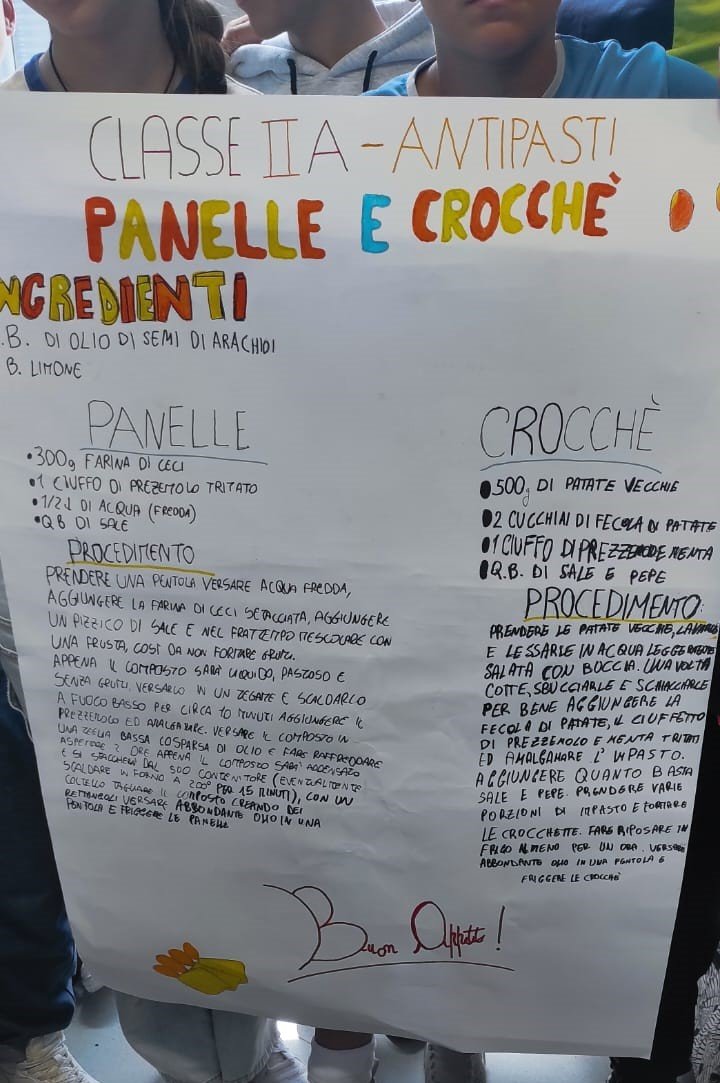 CLASSE II A - ANTIPASTI
PANELLE E CROCCHÈ
NGREDIENTI
.B. DI OLIO DI SEMI DI ARACHIDI
B. LIMONE
PANELLE
• 300g FARINA DI CECI
• 1 CIUFFO DI PREZEMOLO TRITATO
• 1/2 L DI ACQUA (FREDDA)
• QB DI SALE
PROCEDIMENTO
PRENDERE UNA PENTOLA VERSARE ACQUA FREDDA,
AGGIUNGERE LA FARINA DI CECI SETACCIATA, AGGIUNGERE
UN PIZZICO DI SALE E NEL FRATTEMPO MESCOLARE CON
UNA FRUSTA, COSÌ DA NON FORMARE GRUMI.
APPENA IL COMPOSTO SARÀ LIQUIDO, PASTOSO E
SENZA GRUMI, VERSARLO IN UN TEGAME E SCALDARLO
A FUOCO BASSO PER CIRCA 10 MINUTI AGGIUNGERE IL
PREZZEMOLO ED AMALGAMARE. VERSARE IL COMPOSTO IN
UNA TEGLIA BASSA COSPARSA DI OLIO E FARE RAFFREDDARE
ASPETTARE 2 ORE APPENA IL COMPOSTO SARÀ ADDENSATO
E SI STACCHERÀ DAL SUO CONTENITORE (EVENTUALMENTE
SCALDARE IN FORNO A 200° PER 15 MINUTI), CON UN
COLTELLO TAGLIARE IL COMPOSTO CREANDO DEI
RETTANGOLI VERSARE ABBONDANTE OLIO IN UNA
PENTOLA E FRIGGERE LE PANELLE
CROCCHÈ
• 500g DI PATATE VECCHIE
• 2 CUCCHINI DI FECOLA DI PATATE
• 1 CIUFFO DI PREZZEMOLO E MENTA
• Q.B. DI SALE E PEPE
PROCEDIMENTO:
PRENDERE LE PATATE VECCHIE, LAVARLE
E LESSARLE IN ACQUA LEGGERMENTE
SALATA CON BUCCIA. UNA VOLTA
COTTE, SBUCCIARLE E SCHIACCIARLE
PER BENE AGGIUNGERE LA
FECOLA DI PATATE, IL CIUFFETTO
DI PREZZEMOLO E MENTA TRITATI
ED AMALGAMARE L'IMPASTO.
AGGIUNGERE QUANTO BASTA
SALE E PEPE. PRENDERE VARIE
PORZIONI DI IMPASTO E FORMARE
LE CROCCHETTE. FARE RIPOSARE IN
FRIGO ALMENO PER UN ORA. VERSARE
ABBONDANTE OLIO IN UNA PENTOLA E
FRIGGERE LE CROCCHÈ
Buon Appetito!